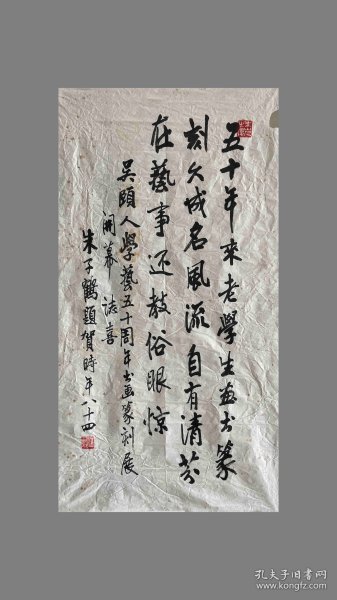 五十年來老學生画书篆
刻久成名風流自有清芬
在藝事还教俗眼惊
吴頤人學藝五十周年书画篆刻展
開幕誌喜
朱子鶴題賀時年八十四
孔夫子旧书网
www.kongfz.com